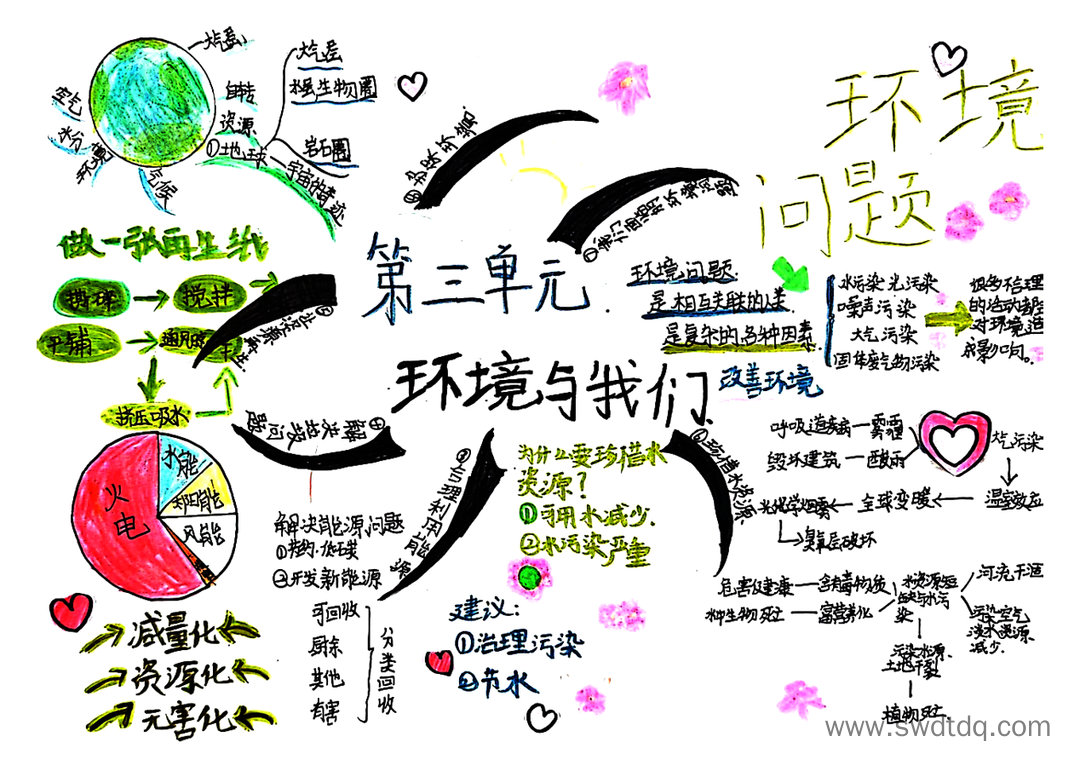 大气层
大气层
水圈生物圈
自转
资源
岩石圈
①地球—宇宙的奇迹
空气
水分
环境
气候
环境
问题
第三单元
环境与我们
做一张再生纸
搅拌
平铺
挤压吸水
火电
水能
太阳能
风能
减量化
资源化
无害化
解决能源问题
①节约·低碳
②开发新能源
可回收
厨余
其他
有害
分类回收
③合理利用能源
②珍惜水资源
①我们面临的环境问题
环境问题
是相互关联的人类
是复杂的多种因素
改善环境
水污染 光污染
噪声污染
大气污染
固体废气物污染
很多不合理
的活动都
对环境造
成影响。
为什么要珍惜水
资源?
①可用水减少.
②水污染严重
建议:
①治理污染
②节水
呼吸道疾病—雾霾
毁坏建筑—酸雨
大气污染
温室效应
全球变暖
光化学烟雾
臭氧层破坏
危害健康—含有毒物质
水种生物死亡—富营养化
水资源短
缺与水污
染
河流干涸
污染空气
淡水资源
减少.
污染水源.
土地干裂
植物死亡.
www.swdtdq.com